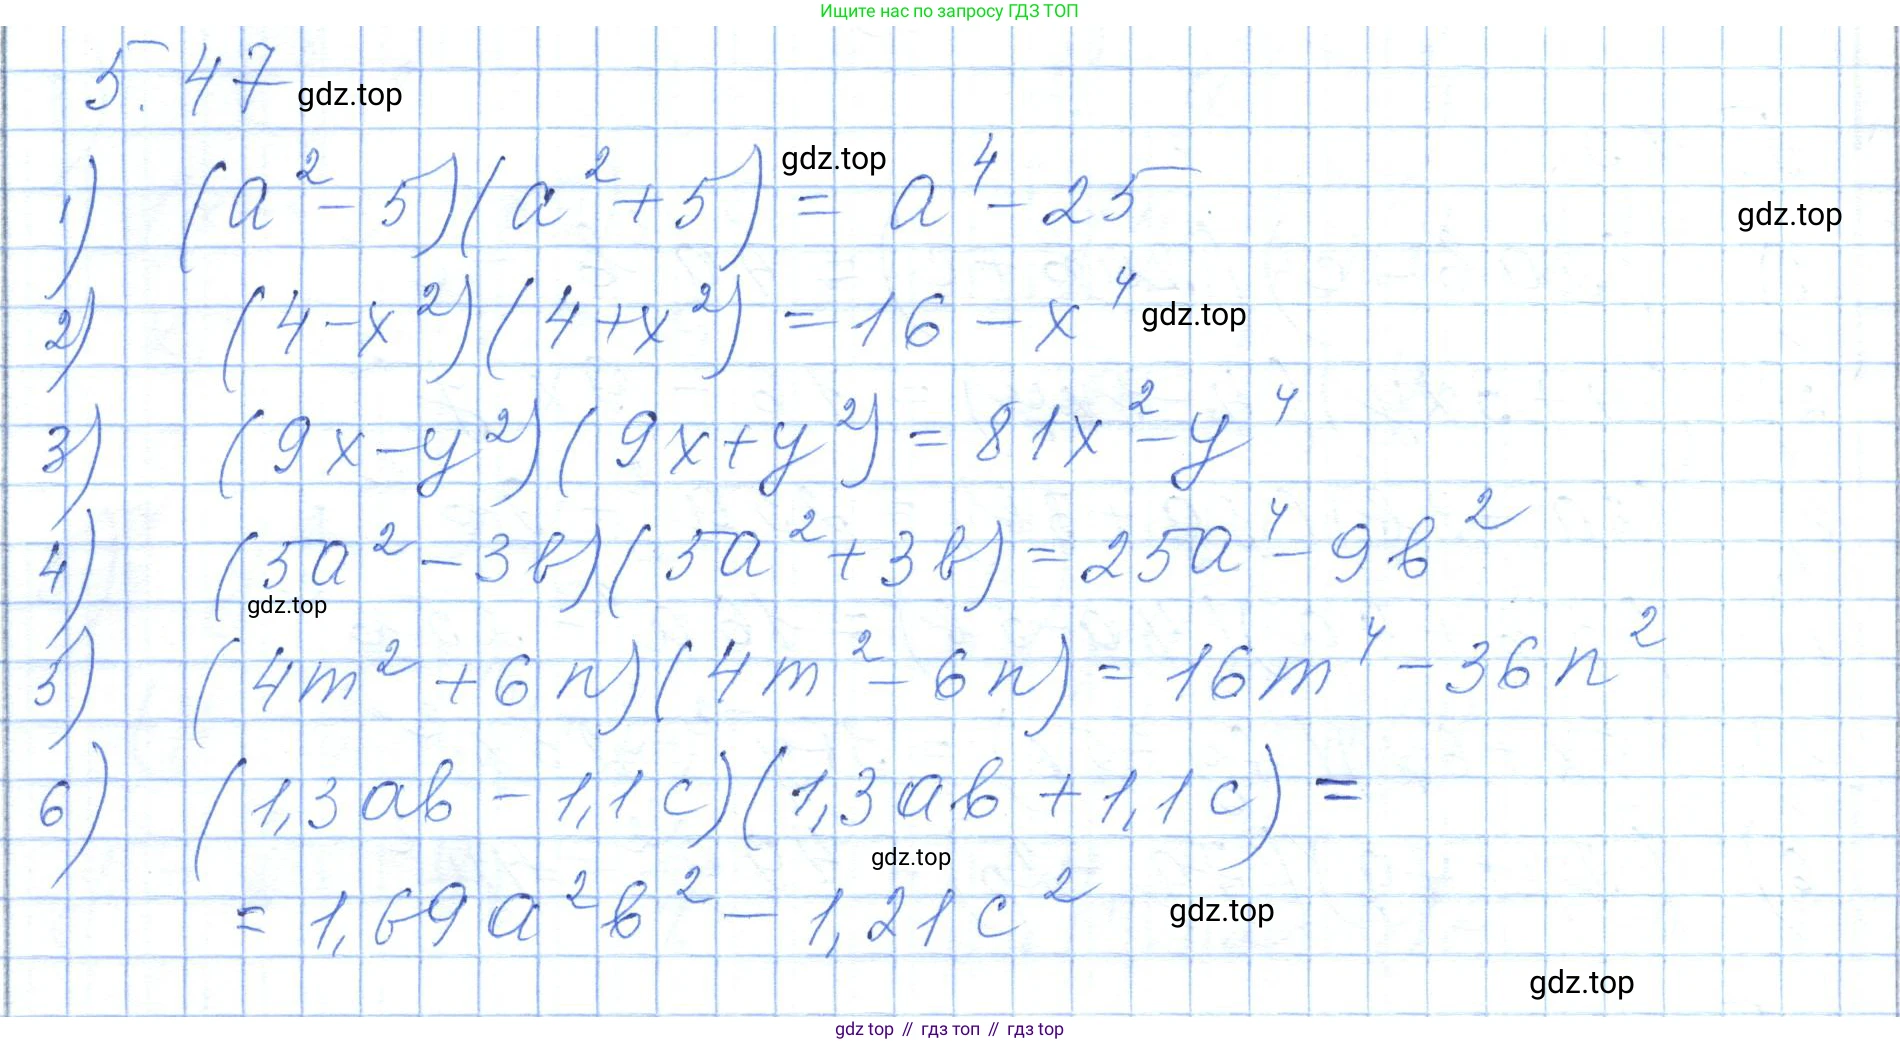 Ищите нас по запросу ГДЗ ТОП
5.47 gdz.top
1) (a² - 5)(a² + 5) = a⁴ - 25
gdz.top
gdz.top
2) (4 - x²)(4 + x²) = 16 - x⁴ gdz.top
3) (9x - y²)(9x + y²) = 81x² - y⁴
4) (5a² - 3b)(5a² + 3b) = 25a⁴ - 9b²
gdz.top
5) (4m² + 6n)(4m² - 6n) = 16m⁴ - 36n²
6) (1,3ab - 1,1c)(1,3ab + 1,1c) =
gdz.top
= 1,69a²b² - 1,21c² gdz.top
gdz.top
gdz top // гдз топ // гдз top